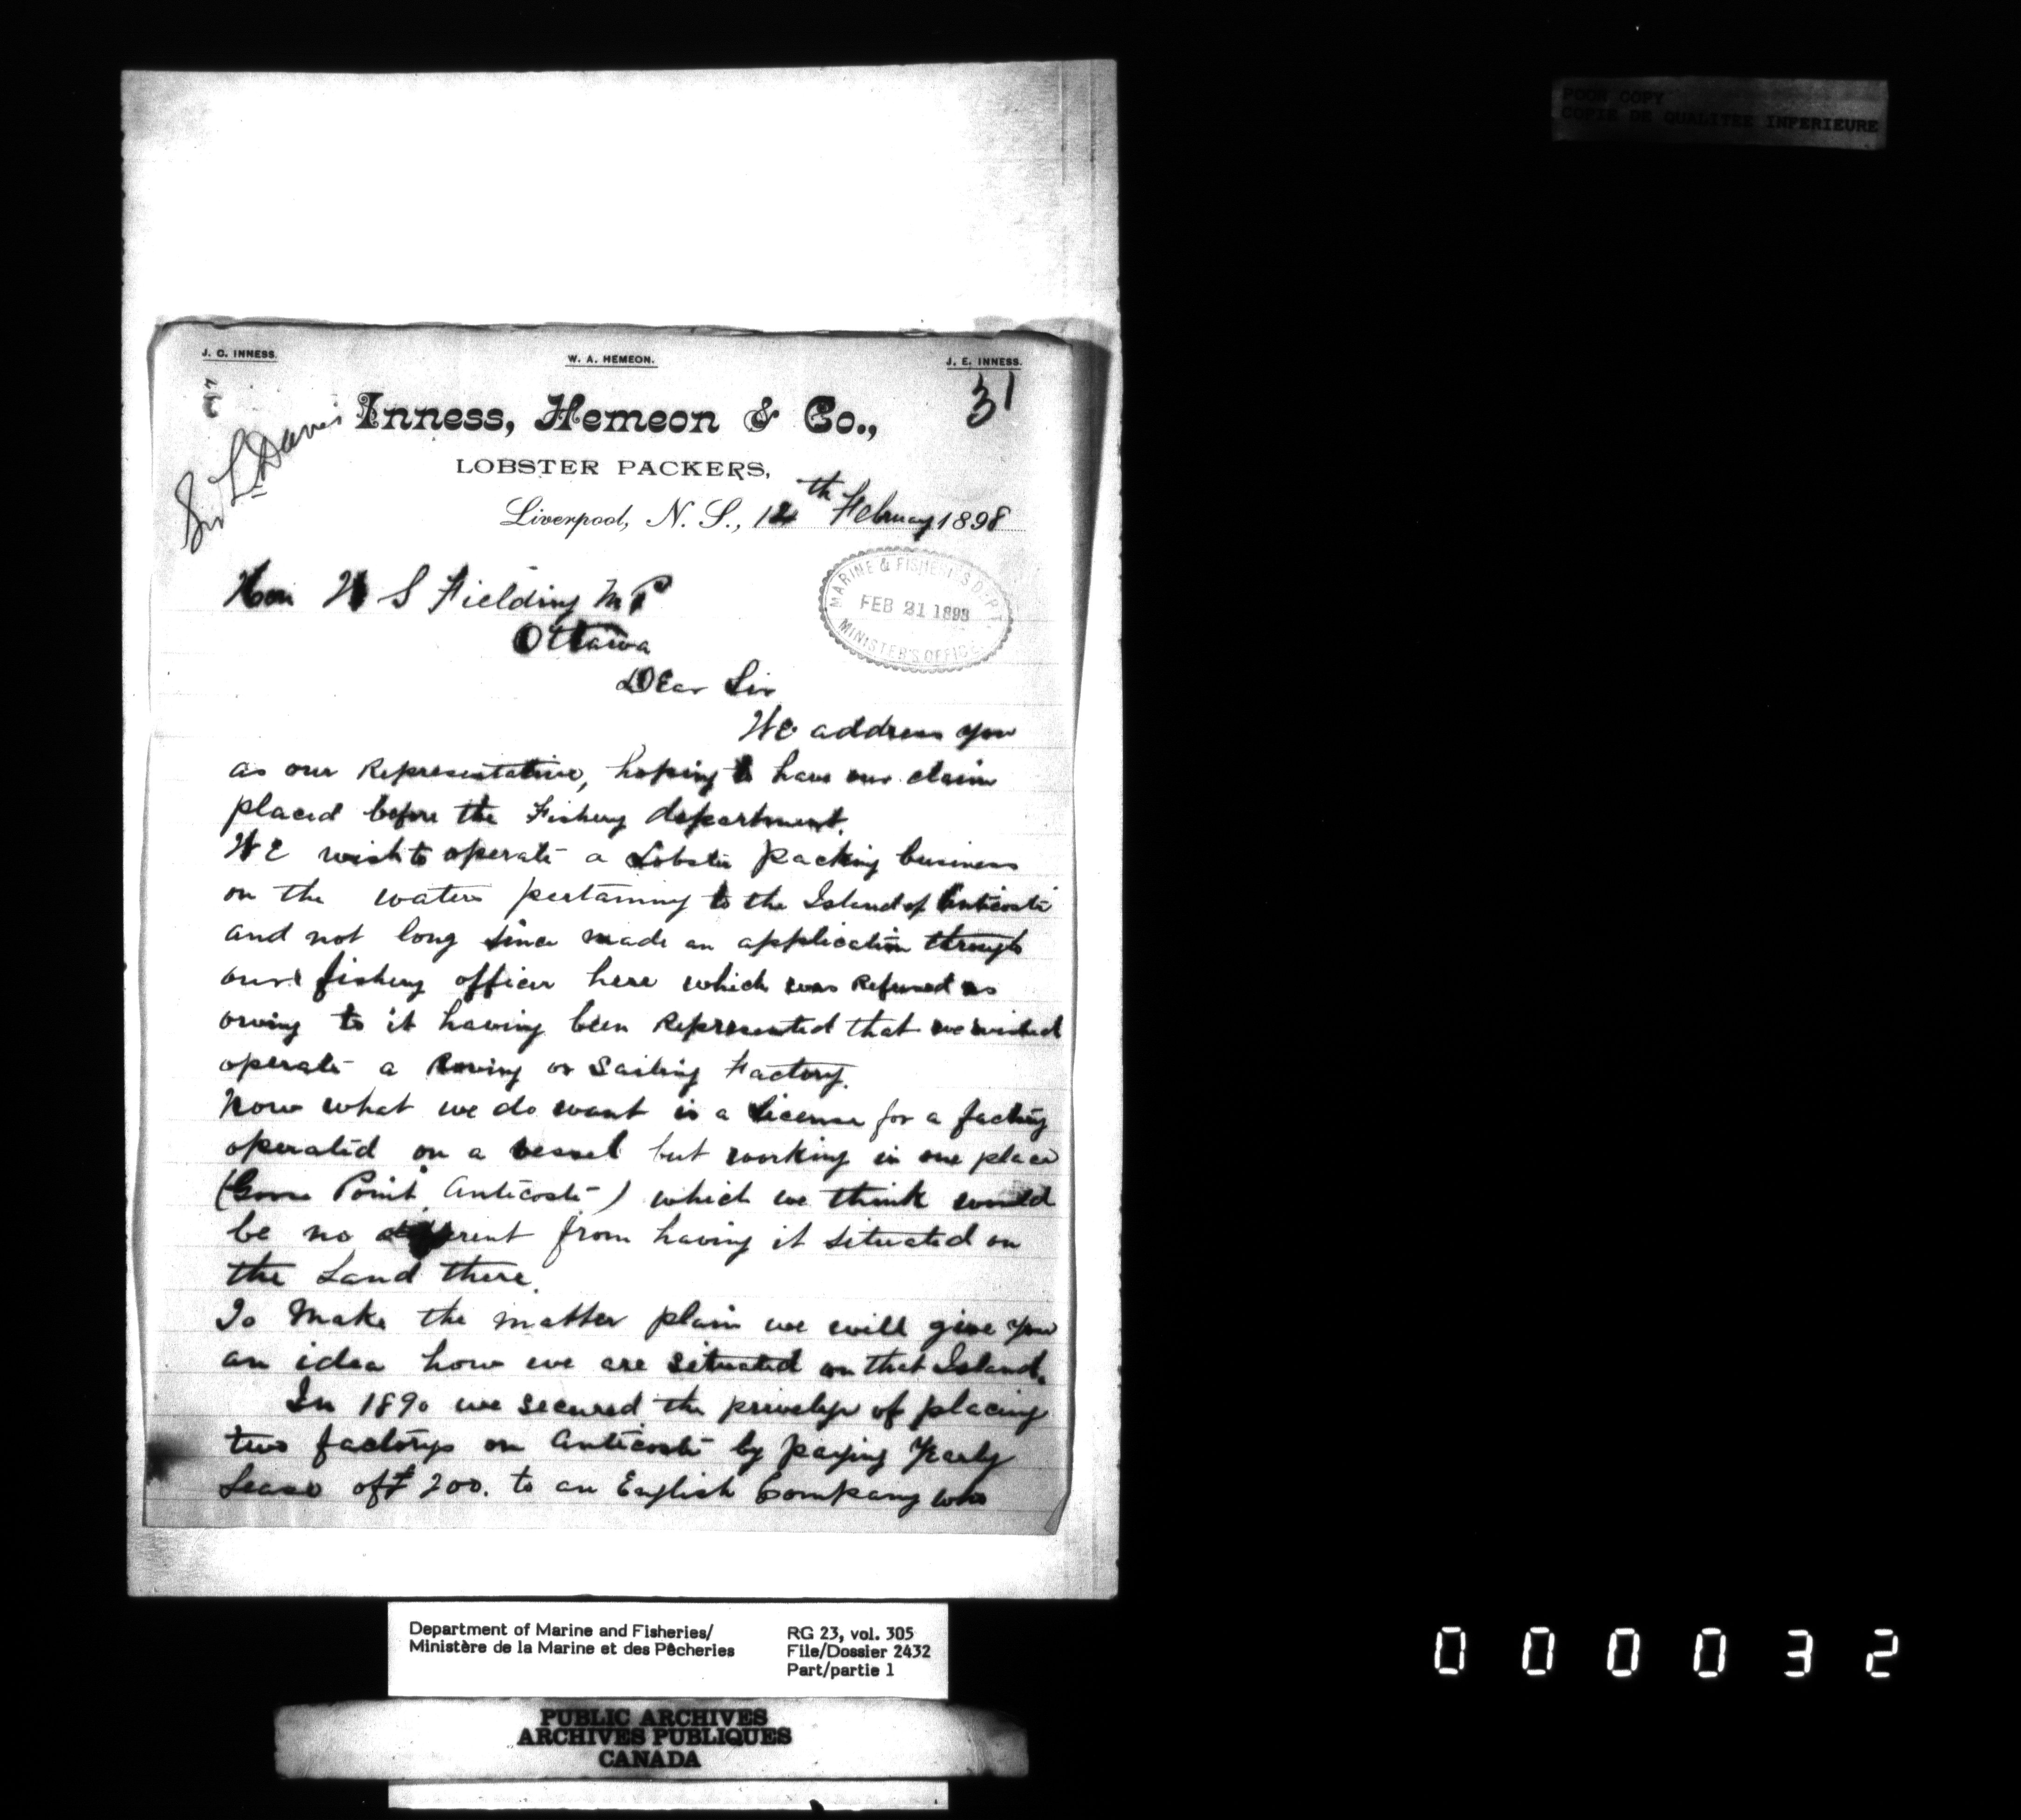 POOR COPY
COPIE DE QUALITEE INFERIEURE
J. C. INNESS.
W. A. HEMEON.
J. E. INNESS.
31
Sir L. Davies
Inness, Hemeon & Co.,
LOBSTER PACKERS,
Liverpool, N. S., 12th February 1898
MARINE & FISHERIES DEPT.
FEB 21 1898
MINISTER'S OFFICE
Hon W S Fielding M P
Ottawa
Dear Sir
We address you
as our Representative, hoping to have our claim
placed before the Fishery department.
We wish to operate a Lobster packing business
on the waters pertaining to the Island of Anticosti
and not long since made an application through
our fishery officer here which was Refused us
owing to it having been Represented that we wished
operate a Roving or Sailing Factory.
Now what we do want is a License for a factory
operated on a vessel but working in one place
(Goose Point Anticosti) which we think would
be no different from having it situated on
the Land there.
To Make the matter plain we will give you
an idea how we are situated on that Island.
In 1890 we secured the privelige of placing
two factorys on Anticosti by paying Yearly
Lease of $200. to an English Company who
Department of Marine and Fisheries/
Ministère de la Marine et des Pêcheries
RG 23, vol. 305
File/Dossier 2432
Part/partie 1
PUBLIC ARCHIVES
ARCHIVES PUBLIQUES
CANADA
000032